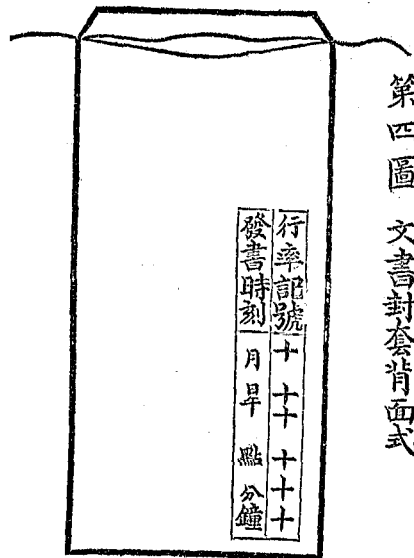 第四圖 文書封套背面式
行率記號 十 十十 十十十
發書時刻 月 日 點 分鐘